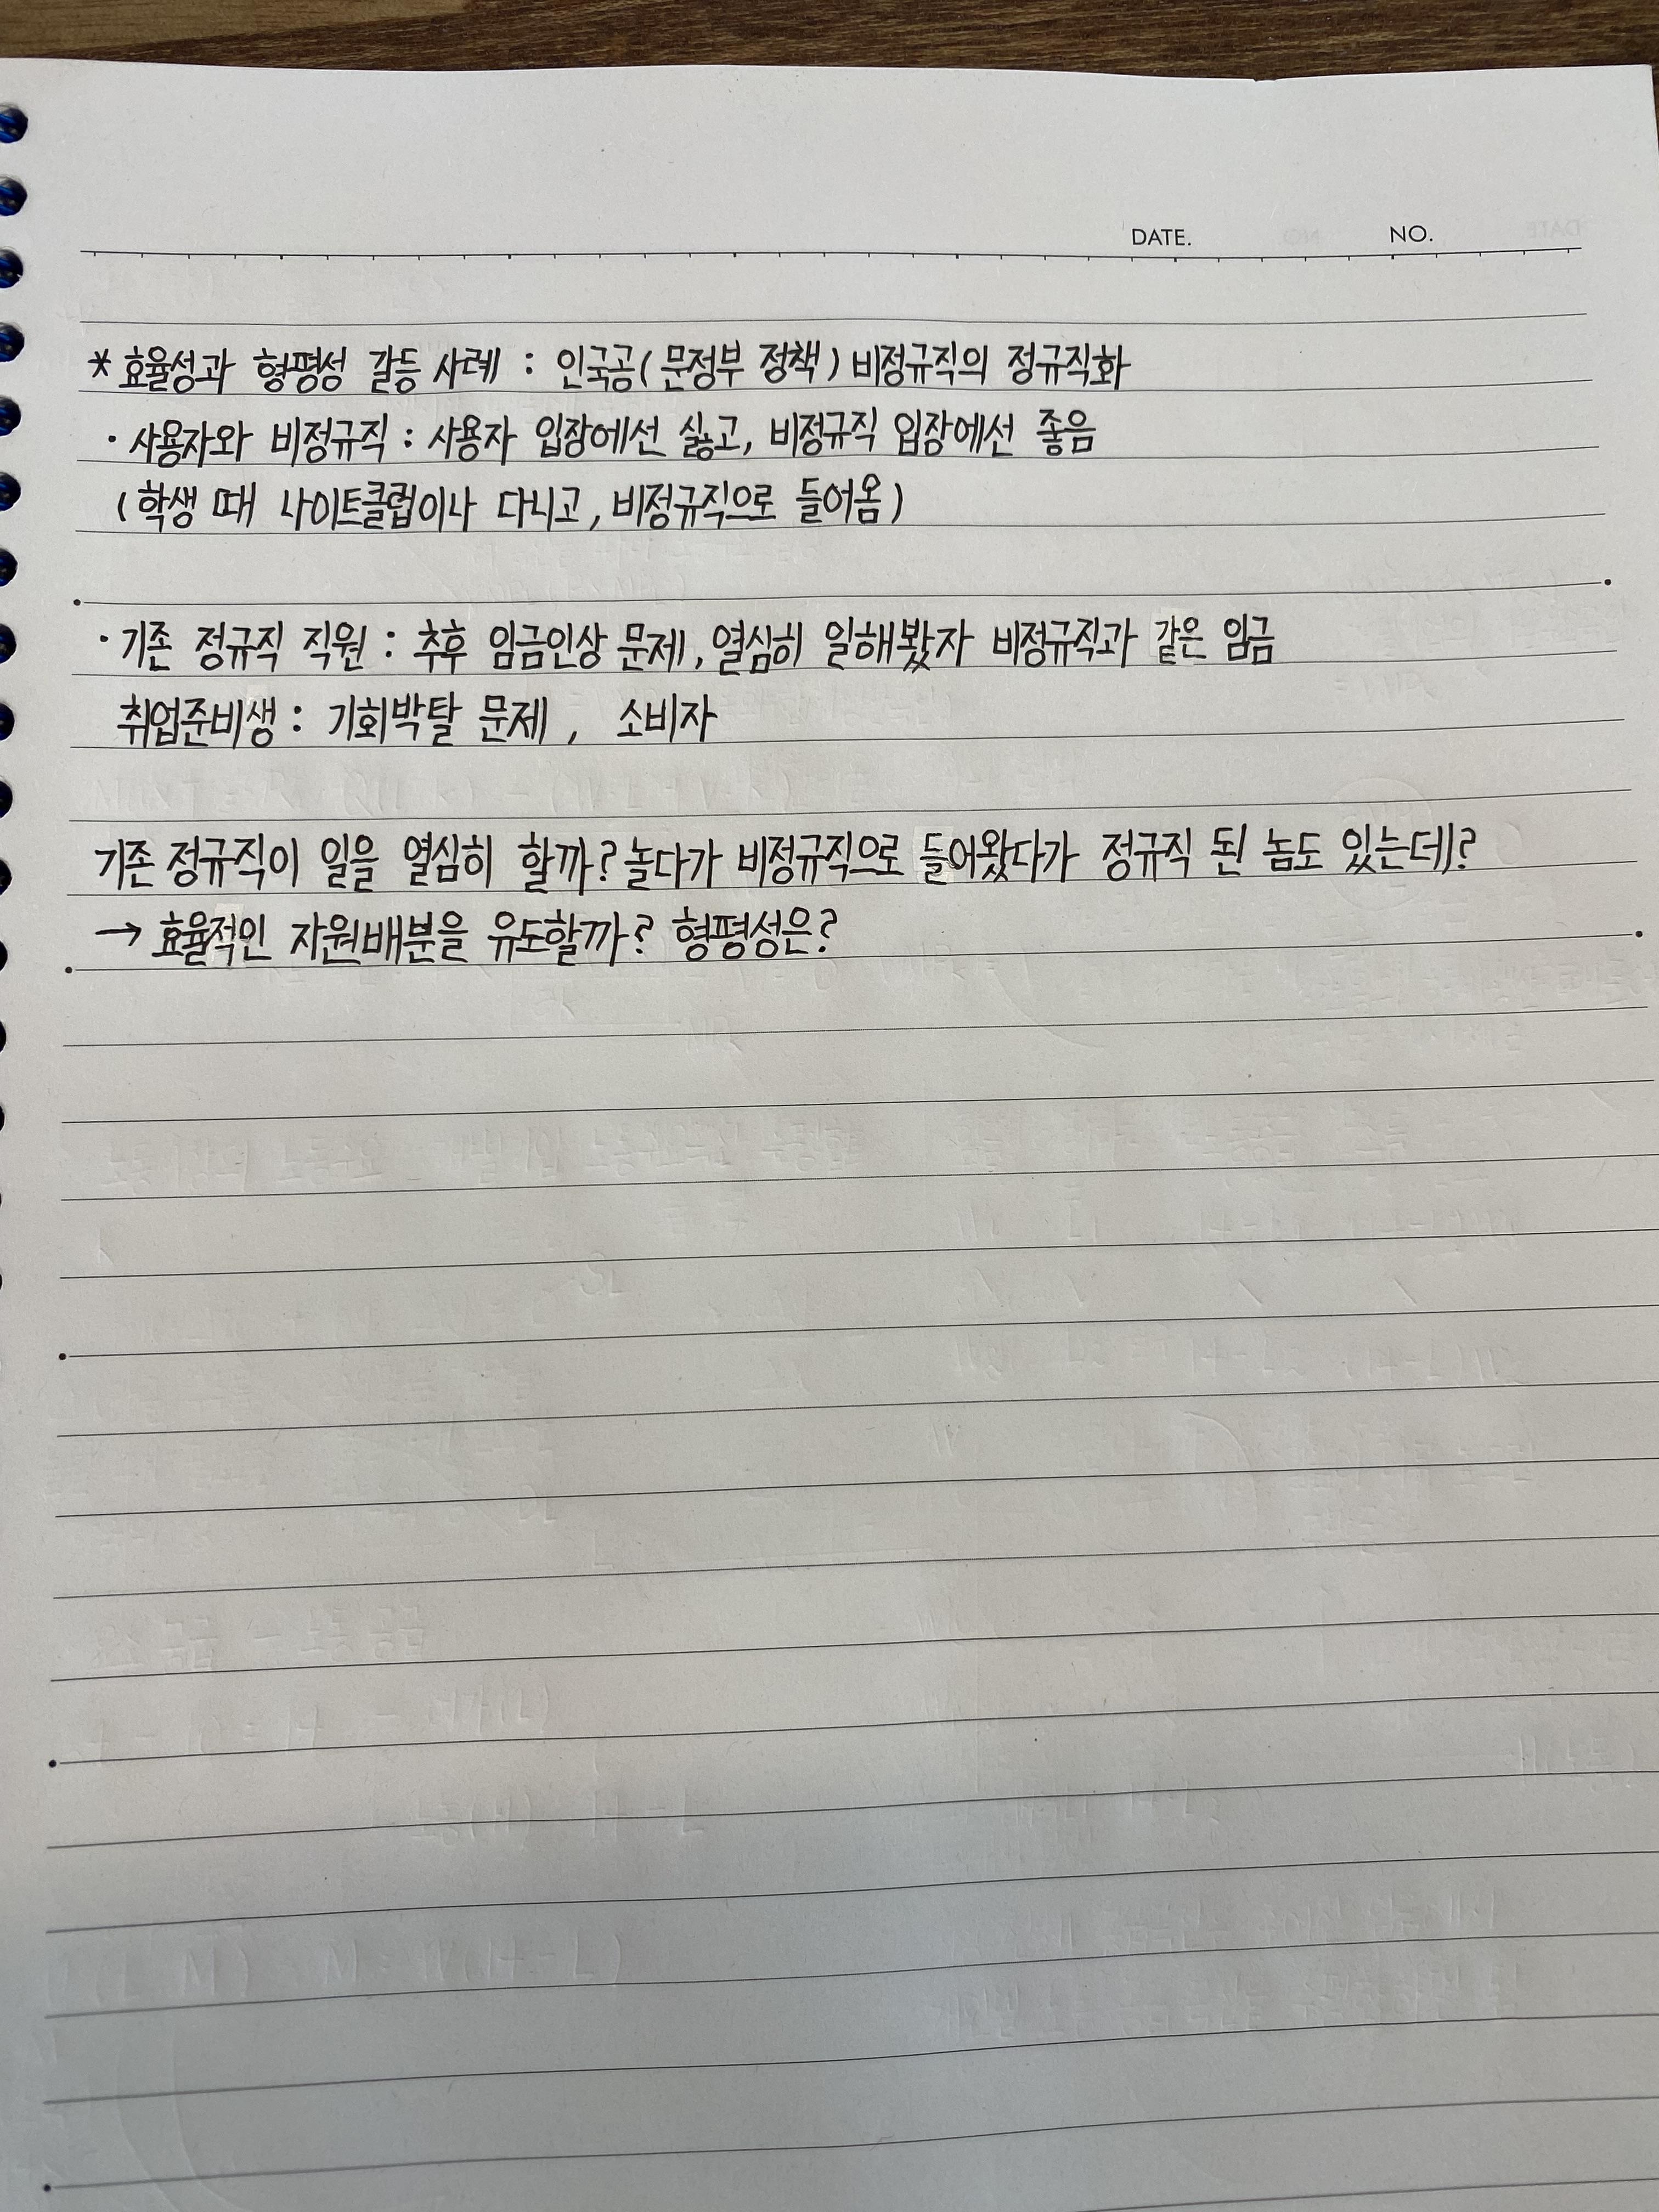 DATE. NO.
* 효율성과 형평성 갈등 사례 : 인국공(문정부 정책) 비정규직의 정규직화
· 사용자와 비정규직 : 사용자 입장에선 싫고, 비정규직 입장에선 좋음
(학생 때 나이트클럽이나 다니고, 비정규직으로 들어옴)
· 기존 정규직 직원 : 추후 임금인상 문제, 열심히 일해봤자 비정규직과 같은 임금
취업준비생 : 기회박탈 문제 , 소비자
기존 정규직이 일을 열심히 할까? 놀다가 비정규직으로 들어왔다가 정규직 된 놈도 있는데?
→ 효율적인 자원배분을 유도할까? 형평성은?